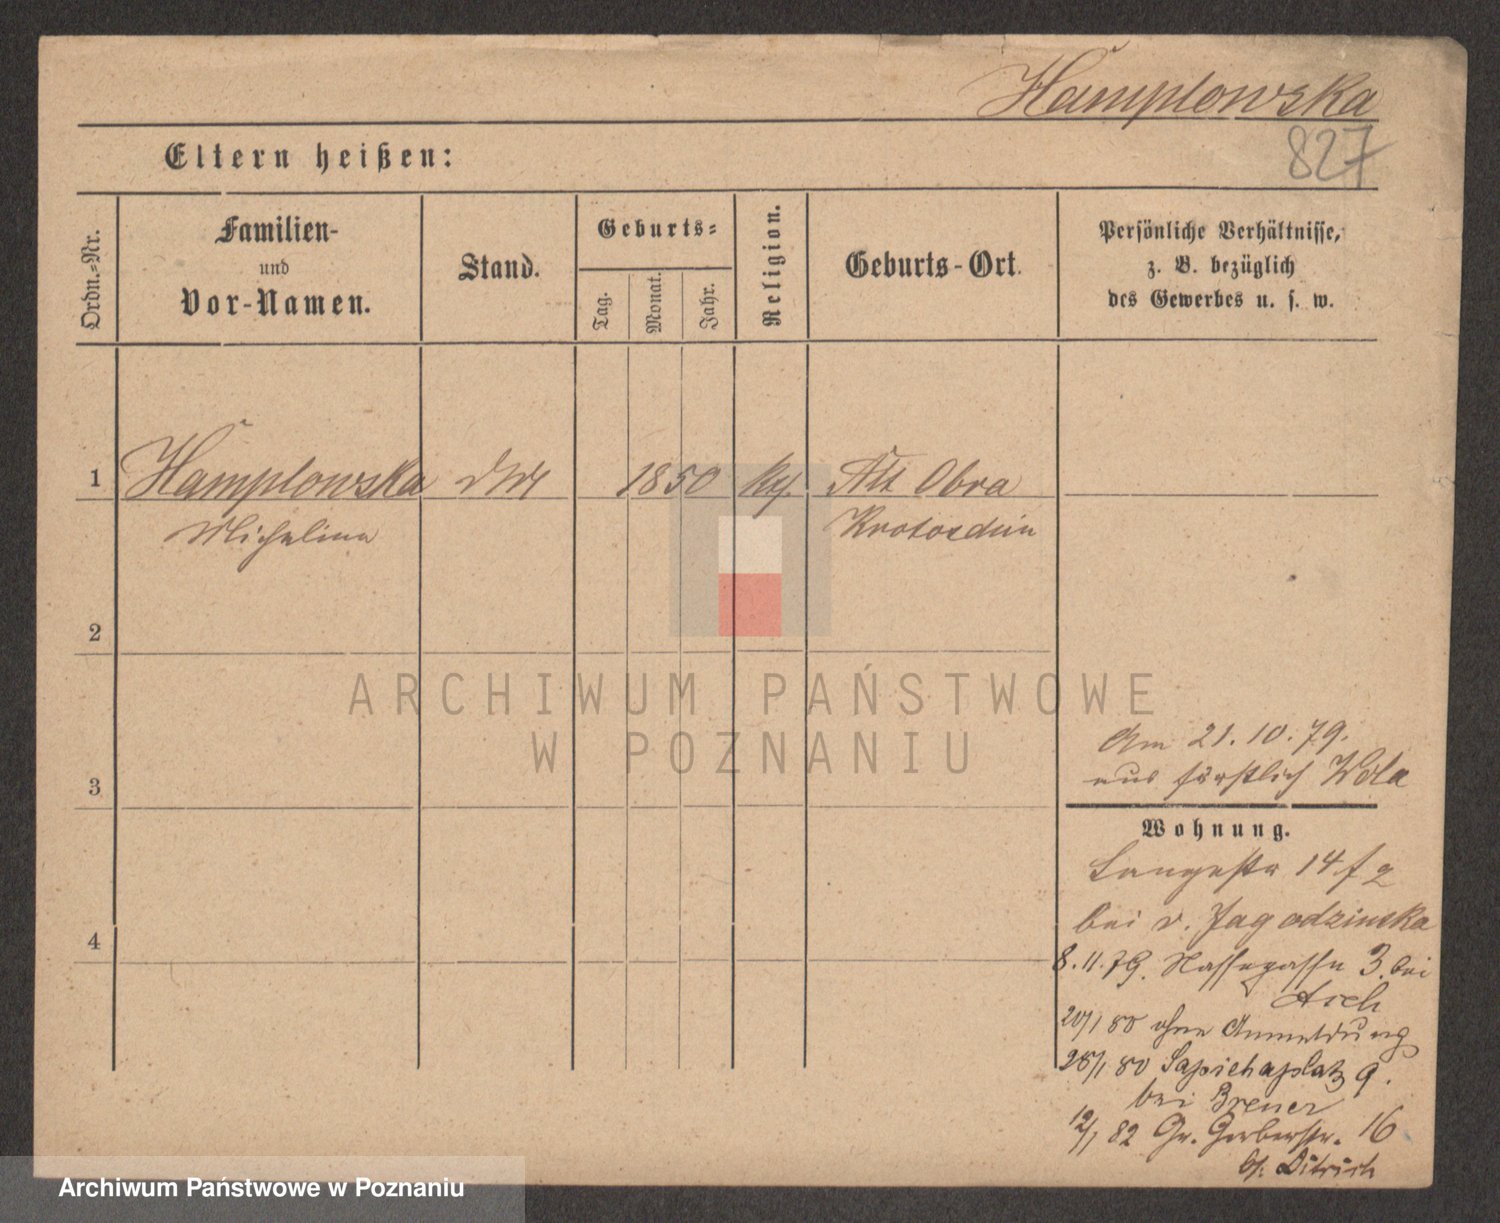 Hamplowska
827
Eltern heißen:
Ordn.-Nr.
Familien-
und
Vor-Namen.
Stand.
Geburts-
Tag.
Monat.
Jahr.
Religion.
Geburts-Ort.
Persönliche Verhältnisse,
z. B. bezüglich
des Gewerbes u. s. w.
1 Hamplowska 1850 Alt Obra
Michalina Krotoschin
2
3
4
Am 21.10.79.
aus fürstlich Wola
Wohnung.
Langestr 14
bei v. Jagodzinska
8.11.79. Nassegasse 3. bei
Asch
20/1 80 ohne Anmeldung
28/1 80 Sapiehaplatz 9.
bei Brener
12/1 82 Gr. Gerberstr. 16
b/. Ditrich
ARCHIWUM PAŃSTWOWE
W POZNANIU
Archiwum Państwowe w Poznaniu